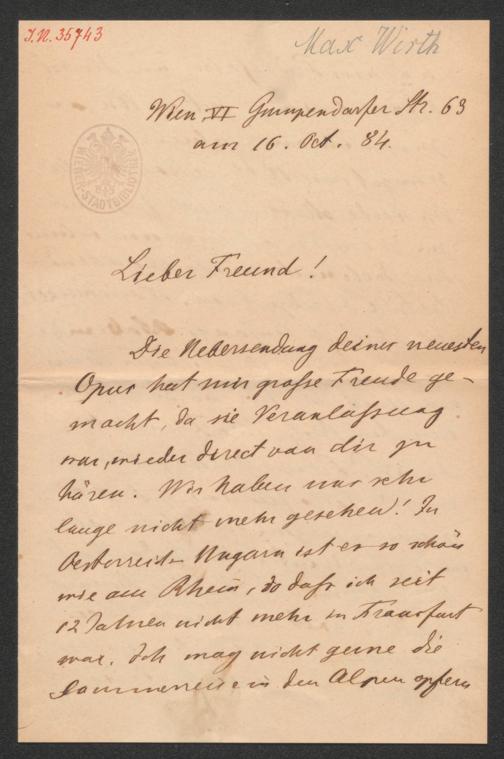 I.N. 35743
Max Wirth
Wien VI Gumpendorfer Str. 63
am 16. Oct. 84.
WIENER STADTBIBLIOTHEK
Lieber Freund!
Die Uebersendung deines neuesten
Opus hat mir große Freude ge-
macht, da sie Veranlassung
war, wieder direct von dir zu
hören. Wir haben uns sehr
lange nicht mehr gesehen! In
Oesterreich-Ungarn ist es so schön
wie am Rhein, so daß ich seit
12 Jahren nicht mehr in Frankfurt
war. Ich mag nicht gerne die
Sommerreise in den Alpen opfern